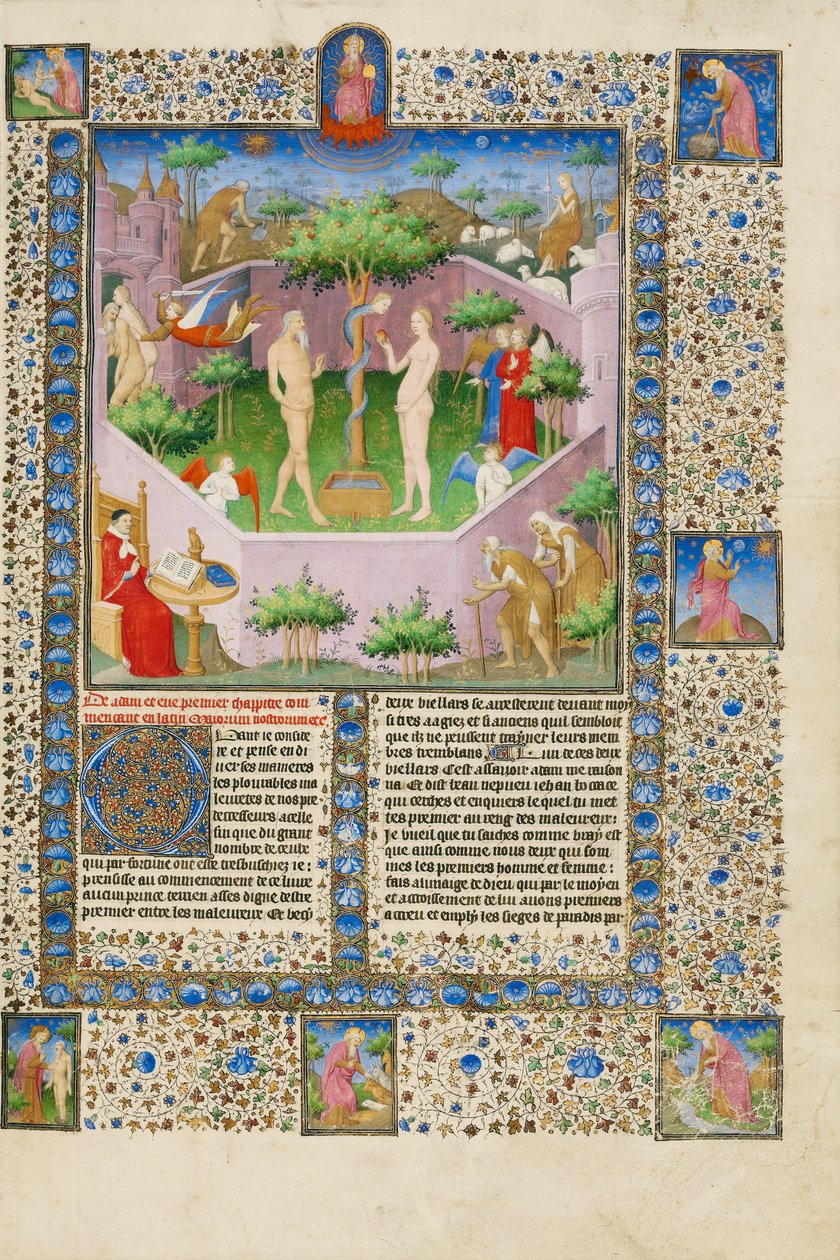 De adam et eue premier chappitre com
mencant en latin Maiorum nostrorum etc.
Quant ie conside
re et pense en di
uerses manieres
les plourables ma
leuretes de nos pre
decesseurs acelle
fin que du grant
nombre de ceulx
qui par fortune ont este tresbuschiez ie:
prensisse au commencement de ce liure
aucun prince terrien asses digne destre
premier entre les maleureux Et vecy
deux viellars se arresterent deuant moy
si tres aagiez et si anciens quil sembloit
que ilz ne peussent trayner leurs mem
bres tremblans. Lun de ces deux
viellars Cest assauoir adam me raison
na Et dist beau nepueu iehan bocace
qui cerches et enquiers le quel tu met
tes premier au reng des maleureux:
Je vueil que tu saches comme vray est
que ainsi comme nous deux qui som
mes les premiers homme et femme:
fais a limaige de dieu qui par le moyen
et accroissement de lui auions premiers
acreu et emply les sieges de paradis par